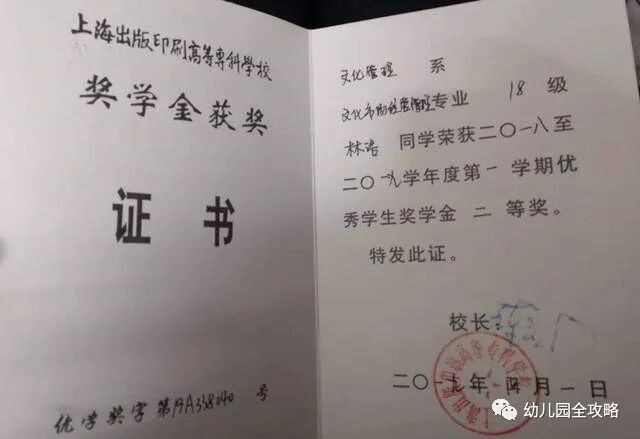 上海出版印刷高等专科学校
奖学金获奖
证书
优学奖字第19A338040号
文化管理 系
文化市场经营管理专业 18 级
林浩 同学荣获二〇一八至
二〇一九学年度第一学期优
秀学生奖学金 二 等奖。
特发此证。
校长:
上海出版印刷高等专科学校
二〇一九年 四月一日
幼儿园全攻略